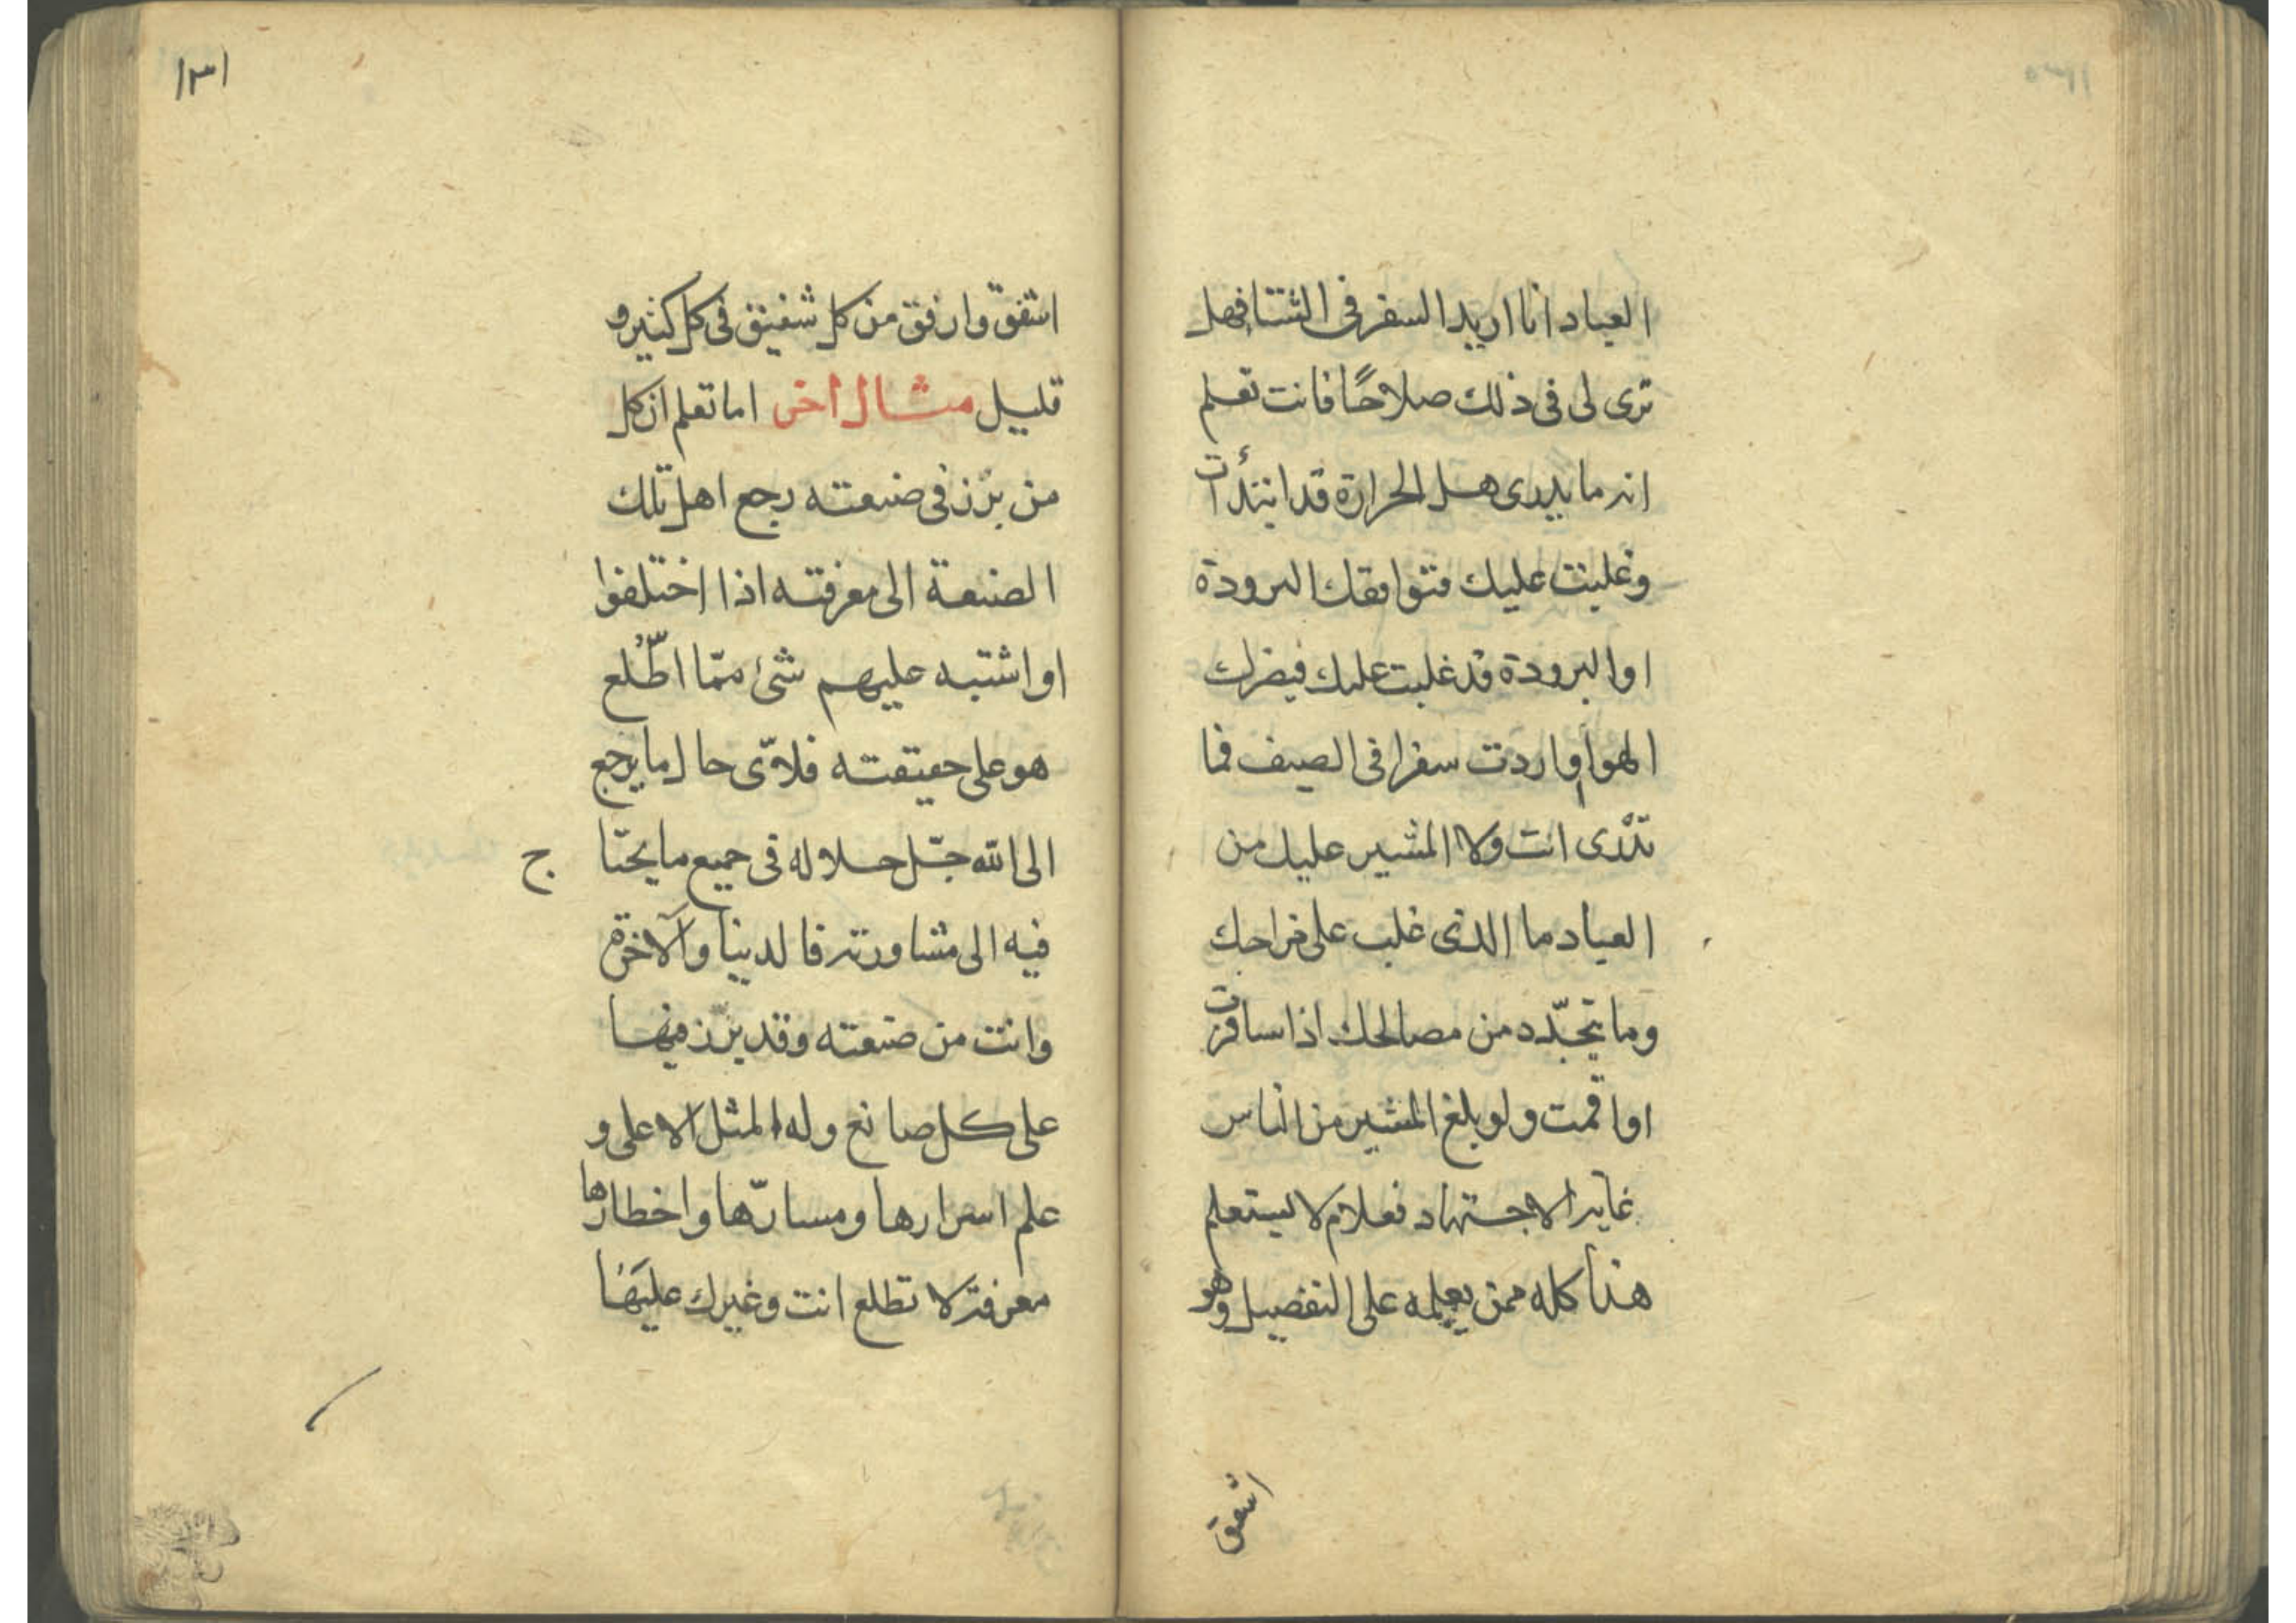 العباد انا اريد السفر فى الشتا فهل
ترى لى فى ذلك صلاحًا فانت تعلم
انه ما يدرى هل الحرارة قد ابتدأت
وغلبت عليك فتوافقك البرودة
او البرودة قد غلبت عليك فيضرك
الهوا واردت سفرا فى الصيف فما
تدرى انت ولا المشير عليك من
العباد ما الذى غلب على مزاجك
وما تجدّد من مصالحك اذا سافرت
او اقمت ولو بلغ المشير من الناس
غاية الاجتهاد فعلام لا يستعلم
هذا كله ممن يعلمه على التفصيل وهو
اشفق
١٣١
اشفق وارفق من كل شفيق فى كل كثير و
قليل مثال اخر اما تعلم ان كل
من برّز فى صنعته رجع اهل تلك
الصنعة الى معرفته اذا اختلفوا
او اشتبه عليهم شئ ممّا اطّلع
هو على حقيقته فلاىّ حال ما يرجع
الى الله جلّ جلاله فى جميع ما يحتاج
فيه الى مشاورته فالدنيا والآخرة
وانت من صنعته وقد برّز فيها
على كل صانع وله المثل الاعلى و
علم اسرارها ومسارّها واخطارها
معرفة لا تطلع انت وغيرك عليها